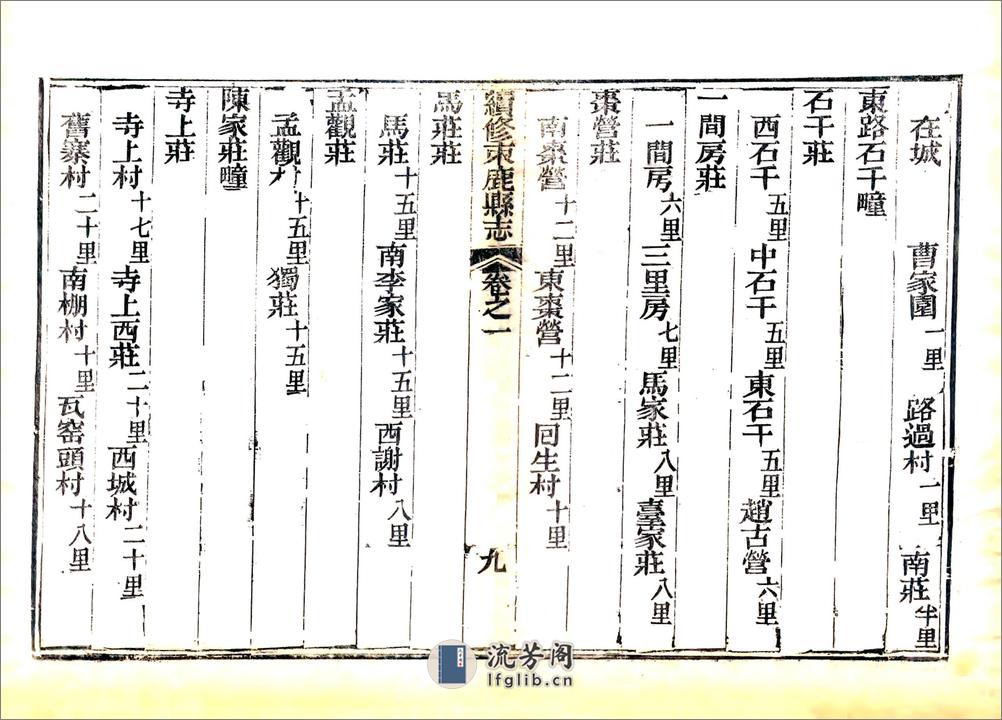 在城 曹家園一里 路過村一里 南莊半里
東路石干疃
石干莊
西石干五里 中石干五里 東石干五里 趙古營六里
一間房莊
一間房六里 三里房七里 馬家莊八里 臺家莊八里
棗營莊
南棗營十二里 東棗營十二里 回生村十里
續修束鹿縣志 卷之一 九
馬莊莊
馬莊十五里 南李家莊十五里 西謝村八里
孟觀莊
孟觀村十五里 獨莊十五里
陳家莊疃
寺上莊
寺上村十七里 寺上西莊二十里 西城村二十里
舊寨村二十里 南棚村十里 瓦窑頭村十八里
流芳阁
lfglib.cn